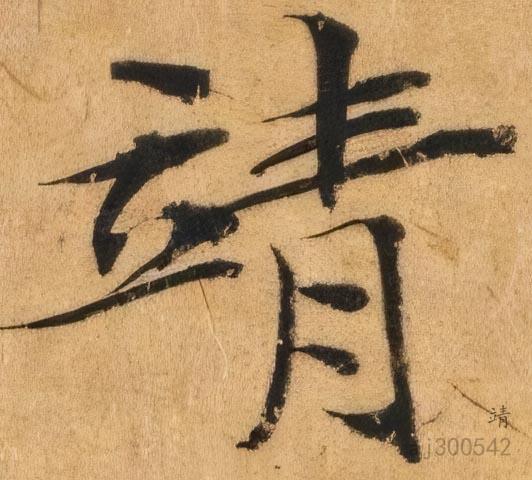 靖
靖
jj300542